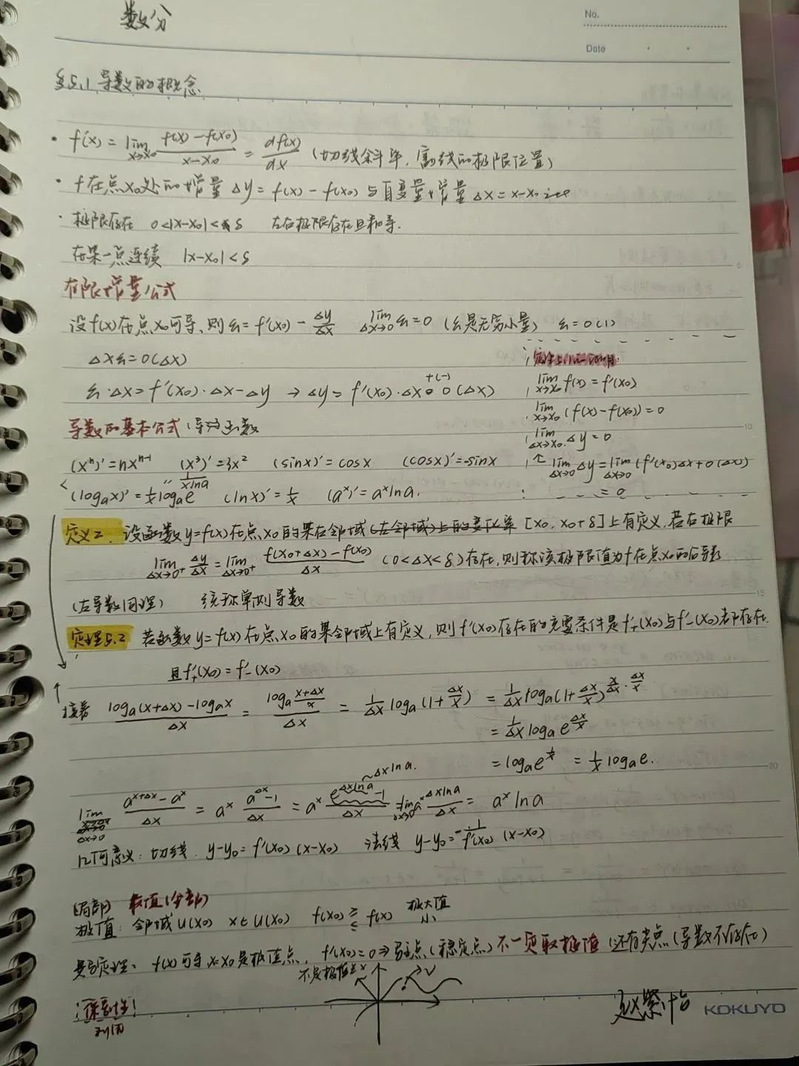 数分
No.
Date
§5.1 导数的概念
· f'(x) = lim x→x₀ (f(x)-f(x₀))/(x-x₀) = df(x)/dx (切线斜率, 割线的极限位置)
· f在点x₀处的增量 Δy = f(x)-f(x₀) 与自变量增量 Δx = x-x₀
· 极限存在 0<|x-x₀|<δ 左右极限存在且相等.
在某一点连续 |x-x₀|<δ
有限增量公式
设f(x)在点x₀可导, 则ε₁=f'(x₀)-Δy/Δx lim Δx→0 ε₁=0 (ε₁是无穷小量) ε₁=o(1)
Δxε₁=o(Δx)
ε₁·Δx=f'(x₀)·Δx-Δy → Δy=f'(x₀)·Δx +(-) o(Δx)
lim x→x₀ f(x)=f'(x₀)
lim x→x₀ (f(x)-f(x₀))=0
lim Δx→0 Δy=0
↑ lim Δx→0 Δy=lim Δx→0 (f'(x₀)Δx+o(Δx))
=0
导数的基本公式 (导)函数
(xⁿ)'=nxⁿ⁻¹ (x³)'=3x² (sinx)'=cosx (cosx)'=-sinx
1/(xlna)
(logₐx)'=1/x logₐe (lnx)'=1/x (aˣ)'=aˣlna.
定义2. 设函数y=f(x)在点x₀的某右邻域 [x₀, x₀+δ]上有定义, 若右极限
lim Δx→0⁺ Δy/Δx = lim Δx→0⁺ (f(x₀+Δx)-f(x₀))/Δx (0<Δx<δ)存在, 则称该极限值为f在点x₀的右导数
(左导数同理) 统称单侧导数
定理5.2 若函数y=f(x)在点x₀的某邻域上有定义, 则f'(x₀)存在的充要条件是f'₊(x₀)与f'₋(x₀)都存在.
且f'₊(x₀)=f'₋(x₀)
接着 (logₐ(x+Δx)-logₐx)/Δx = (logₐ (x+Δx)/x)/Δx = 1/Δx logₐ(1+Δx/x) = 1/Δx logₐ(1+Δx/x)^(x/Δx · Δx/x)
= 1/Δx logₐ e^(Δx/x)
= logₐe^(1/x) = 1/x logₐe.
~Δxlna.
lim Δx→0 (a^(x+Δx)-aˣ)/Δx = aˣ (a^Δx-1)/Δx = aˣ (e^(Δxlna)-1)/Δx = lim Δx→0 aˣ Δxlna/Δx = aˣlna
几何意义: 切线 y-y₀=f'(x₀)(x-x₀) 法线 y-y₀=-1/f'(x₀) (x-x₀)
(局部)
极值: 邻域U(x₀) x∈U(x₀) f(x₀)≥≤f(x) 极大值 小
费马定理: f(x)可导 x=x₀是极值点, f'(x₀)=0 ⇒ 驻点(稳定点) 不一定取极值 (还有尖点(导数不存在)
不是极值
保号性!
利用
赵紫怡
KOKUYO